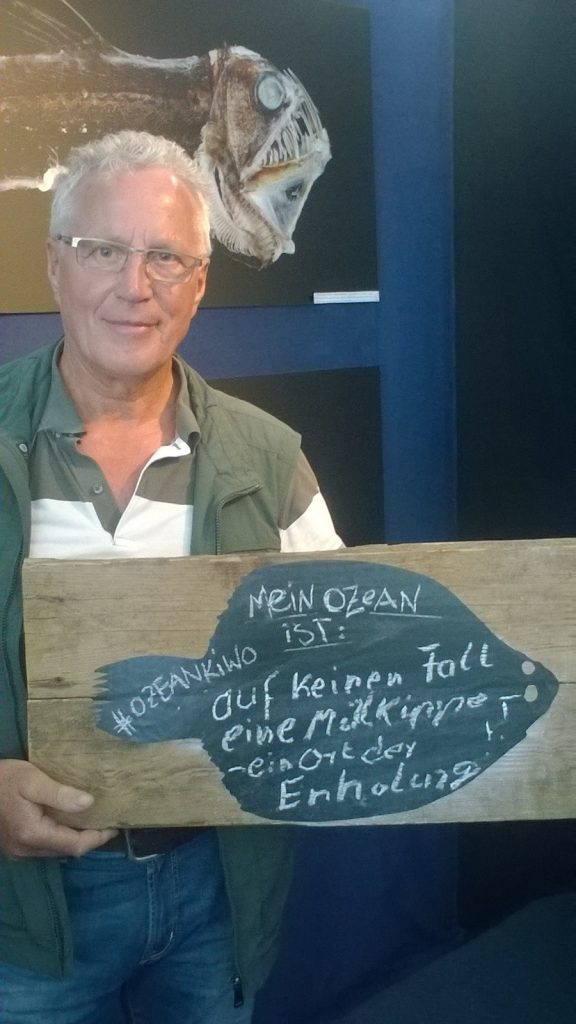 MEiN OZeAN
iST:
#OZEANKiWO
auf keinen Fall
eine Müllkippe
- ein Ort der
Erholung!!